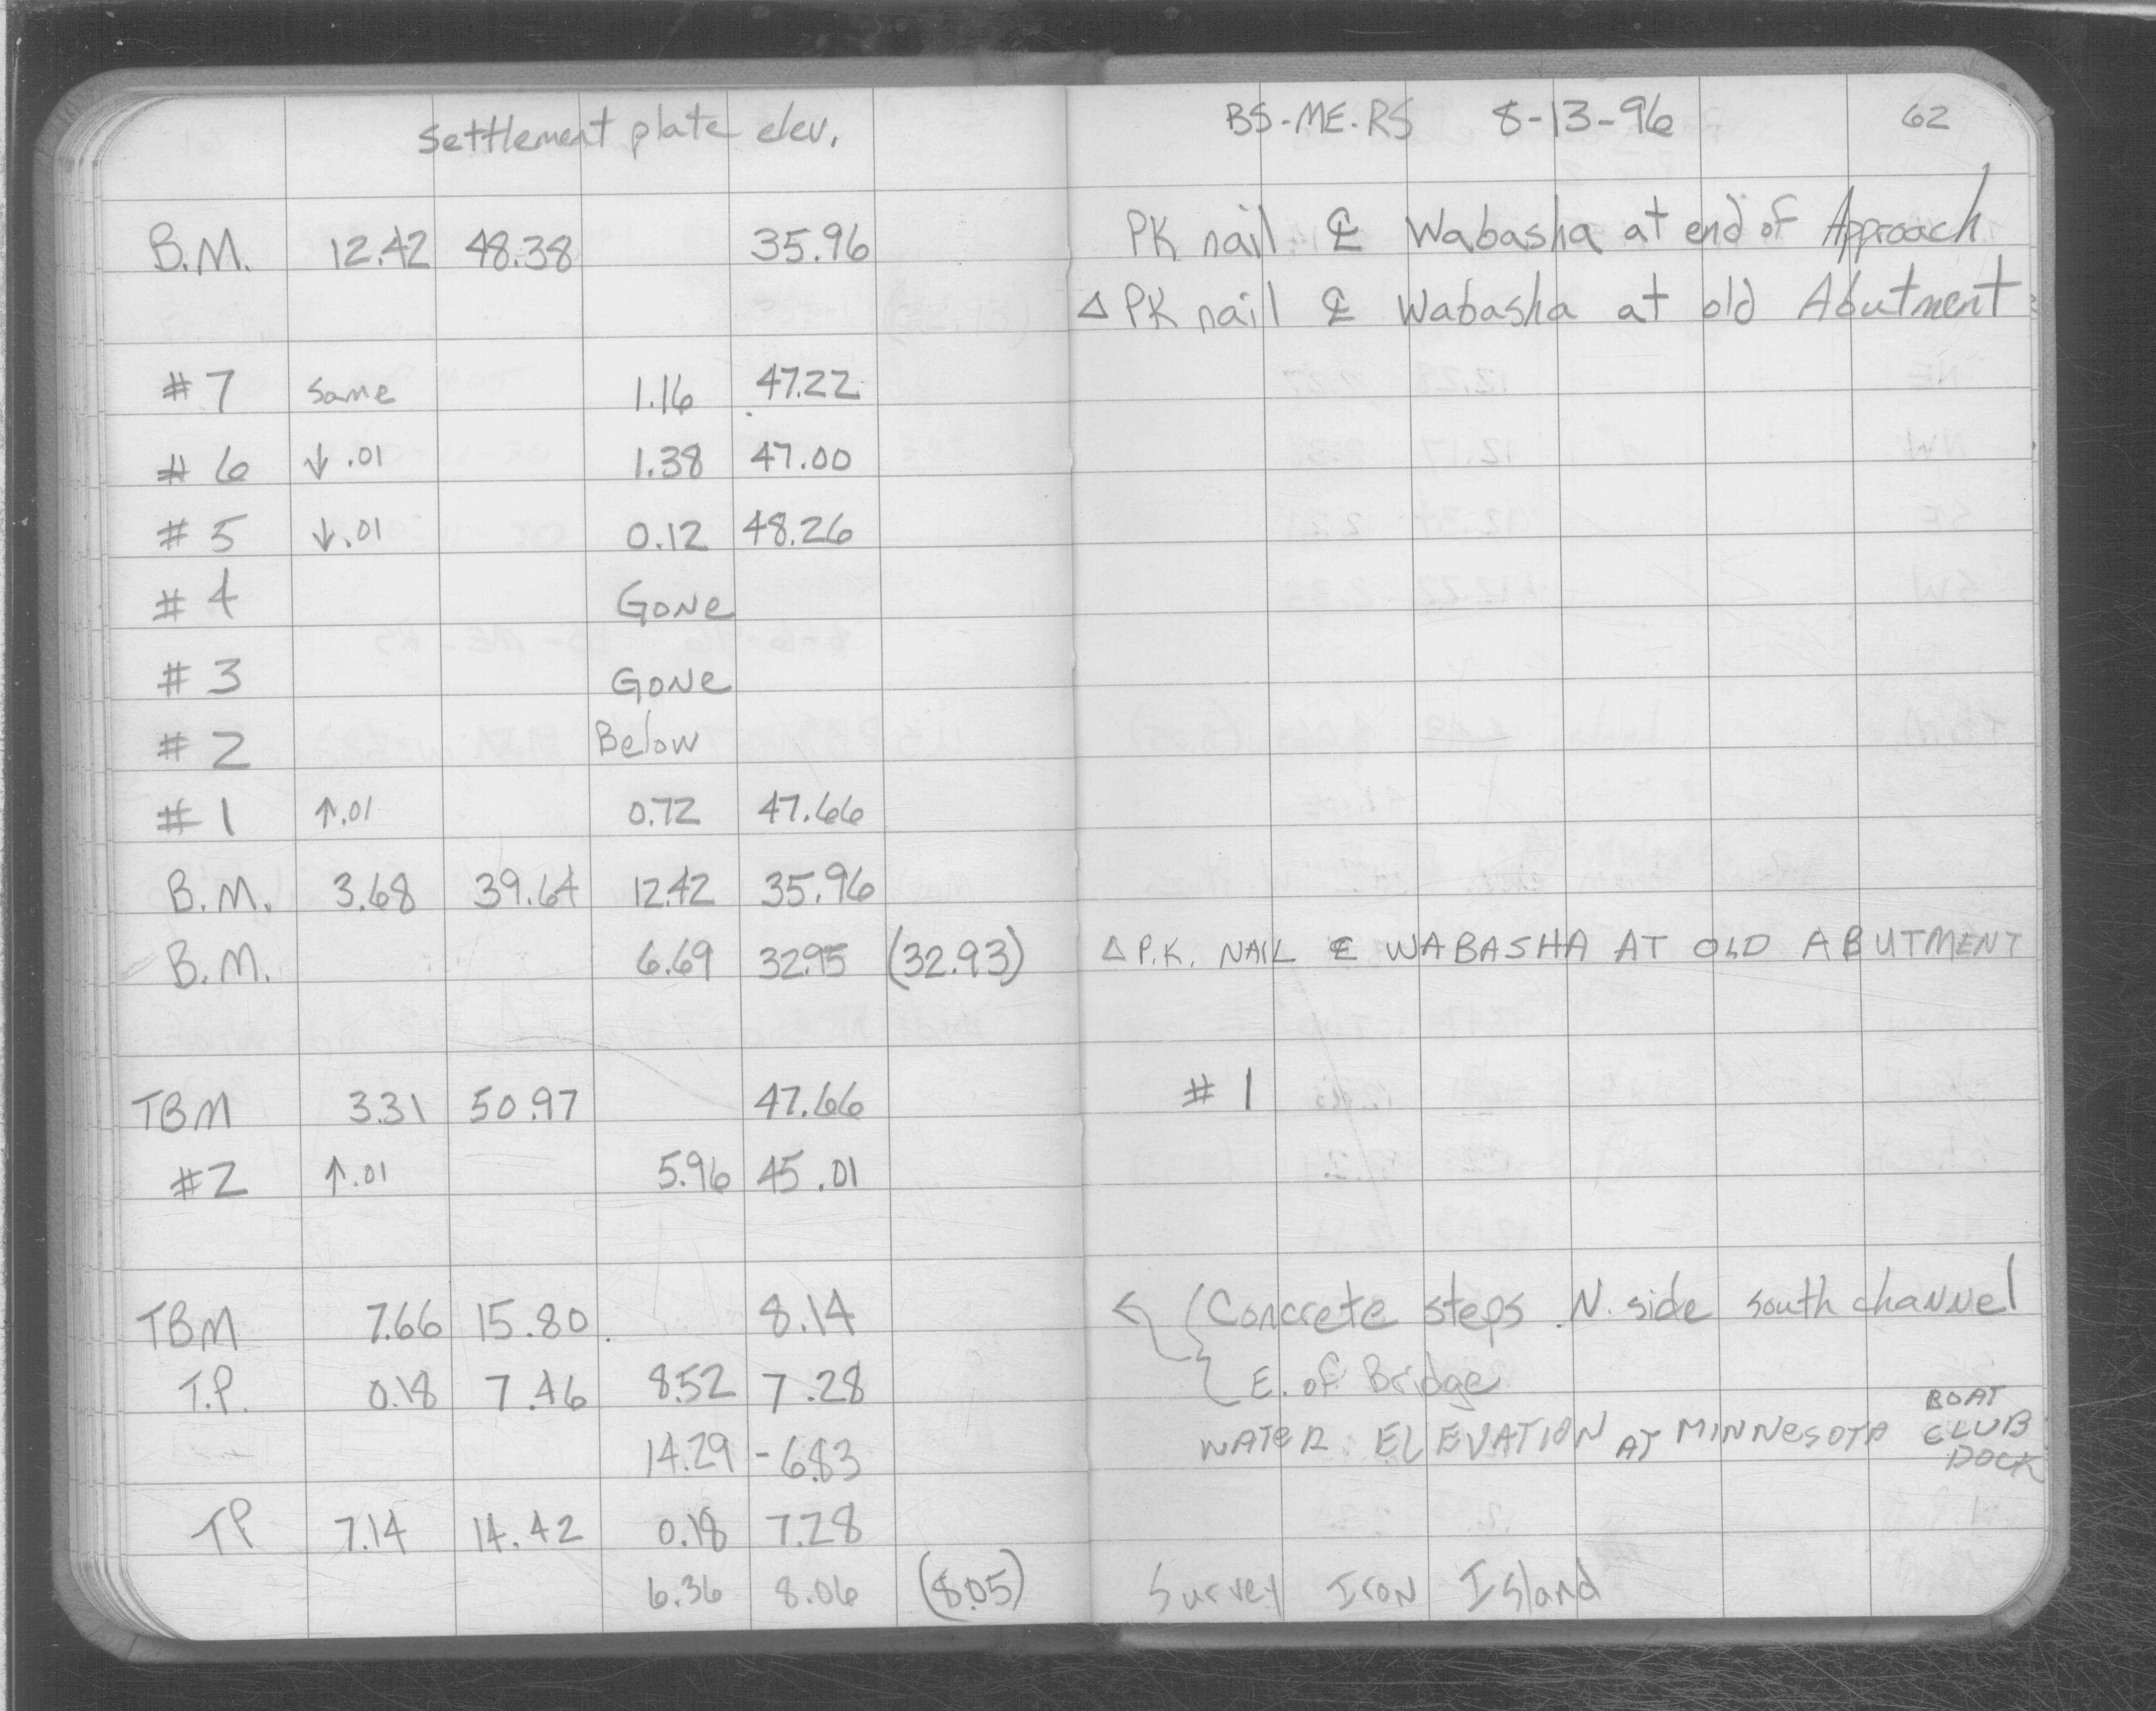 Settlement plate elev. BS-ME-RS 8-13-96 62
B.M. 12.42 48.38 35.96 PK nail ℄ Wabasha at end of Approach
△ PK nail ℄ Wabasha at old Abutment
#7 same 1.16 47.22
#6 ↓.01 1.38 47.00
#5 ↓.01 0.12 48.26
#4 GONE
#3 GONE
#2 Below
#1 ↑.01 0.72 47.66
B.M. 3.68 39.64 12.42 35.96
B.M. 6.69 32.95 (32.93) △ P.K. NAIL ℄ WABASHA AT OLD ABUTMENT
TBM 3.31 50.97 47.66 #1
#2 ↑.01 5.96 45.01
TBM 7.66 15.80 8.14 Concrete steps N. side south channel
T.P. 0.18 7.46 8.52 7.28 E. of Bridge
14.29 -6.83 WATER ELEVATION AT MINNESOTA BOAT CLUB DOCK
TP 7.14 14.42 0.18 7.28
6.36 8.06 (8.05) Survey Iron Island